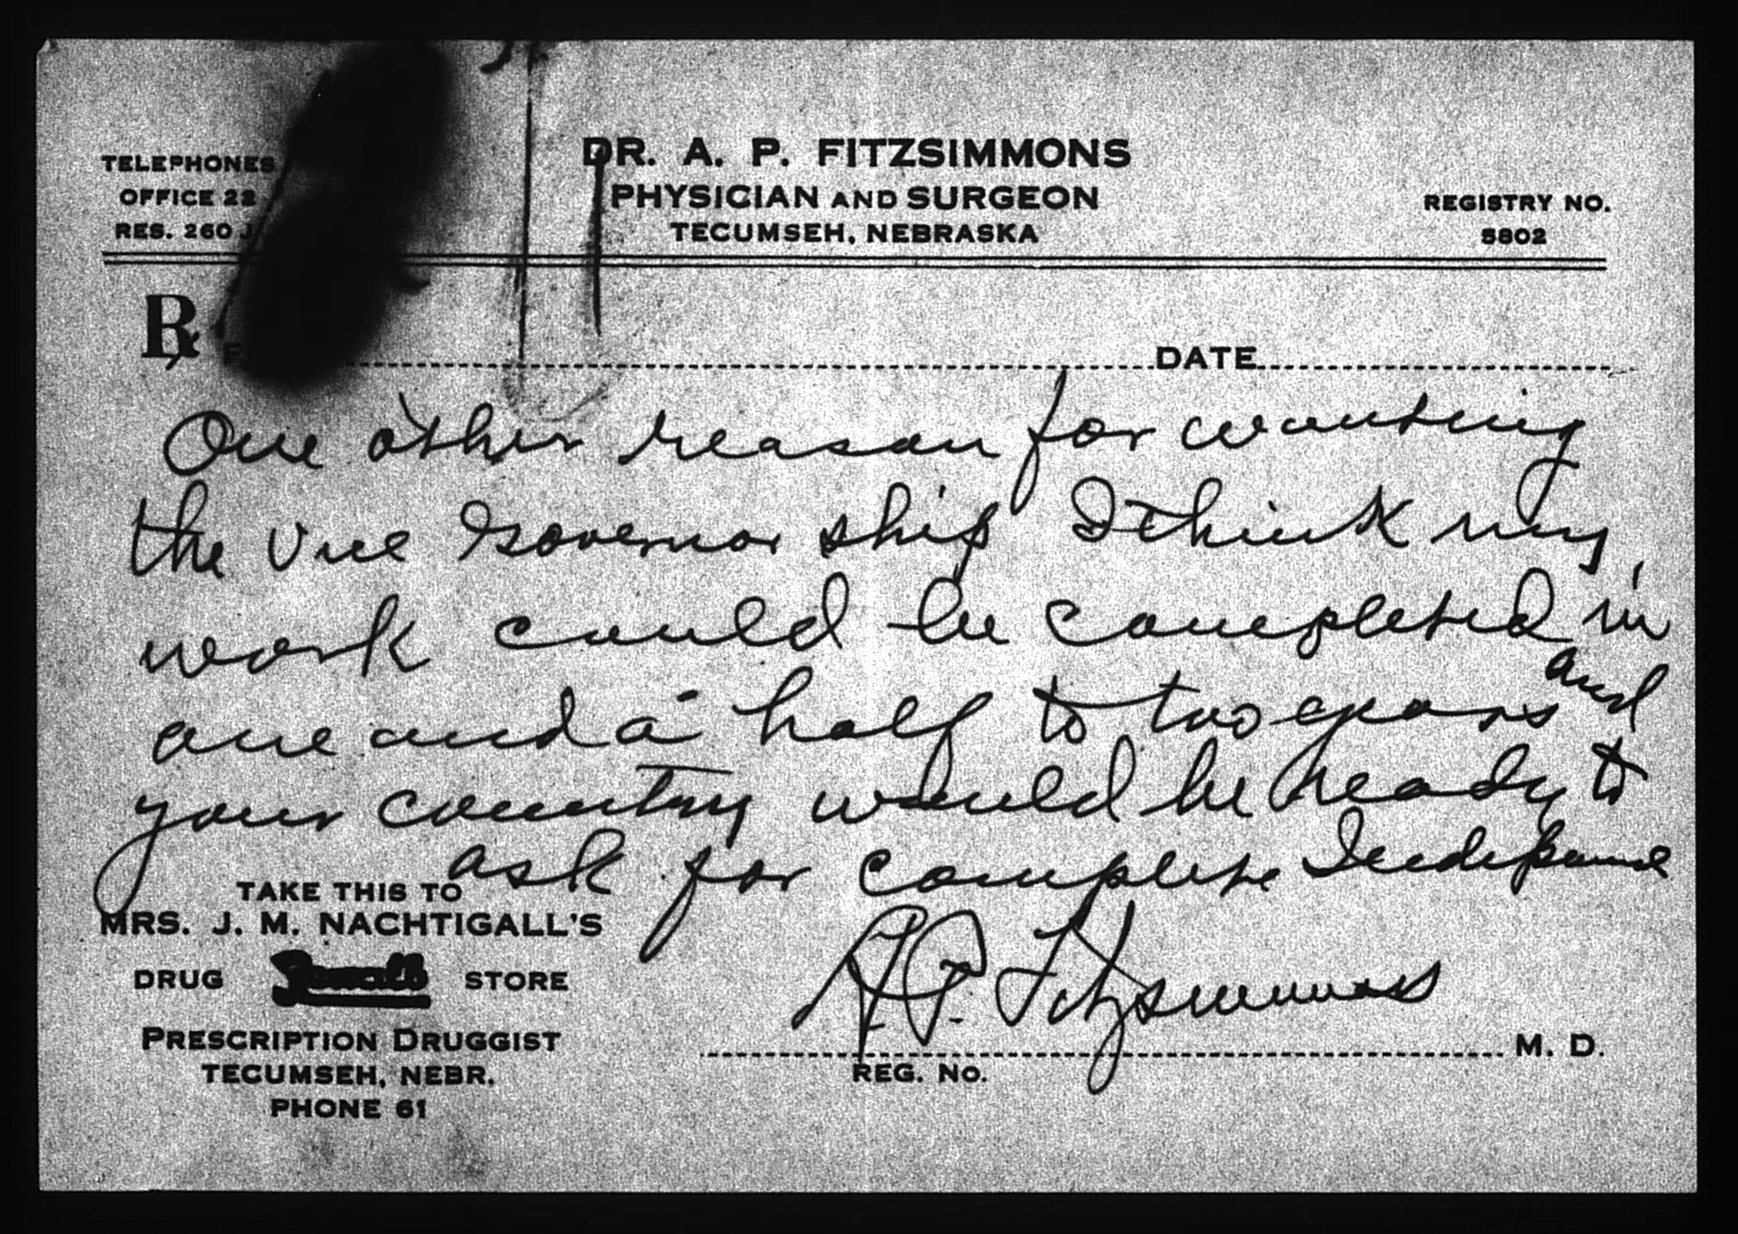 DR. A. P. FITZSIMMONS
PHYSICIAN AND SURGEON
TECUMSEH, NEBRASKA
TELEPHONES
OFFICE 22
RES. 260 J
REGISTRY NO.
5802
℞
DATE
One other reason for wanting
the Vice Governor ship I think my
work could be completed in
one and a half to two years and
your country would be ready to
ask for complete Independence
A. P. Fitzsimmons
M. D.
REG. NO.
TAKE THIS TO
MRS. J. M. NACHTIGALL'S
DRUG Rexall STORE
PRESCRIPTION DRUGGIST
TECUMSEH, NEBR.
PHONE 61